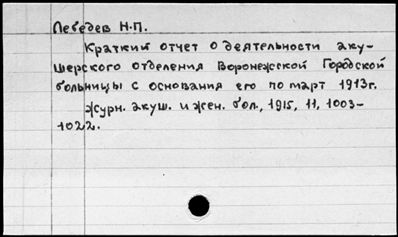 Лебедев Н.П.
Краткий отчет о деятельности аку-
шерского отделения Воронежской Городской
больницы с основания его по март 1913г.
Журн. акуш. и жен. бол., 1915, 11, 1003-
1022.